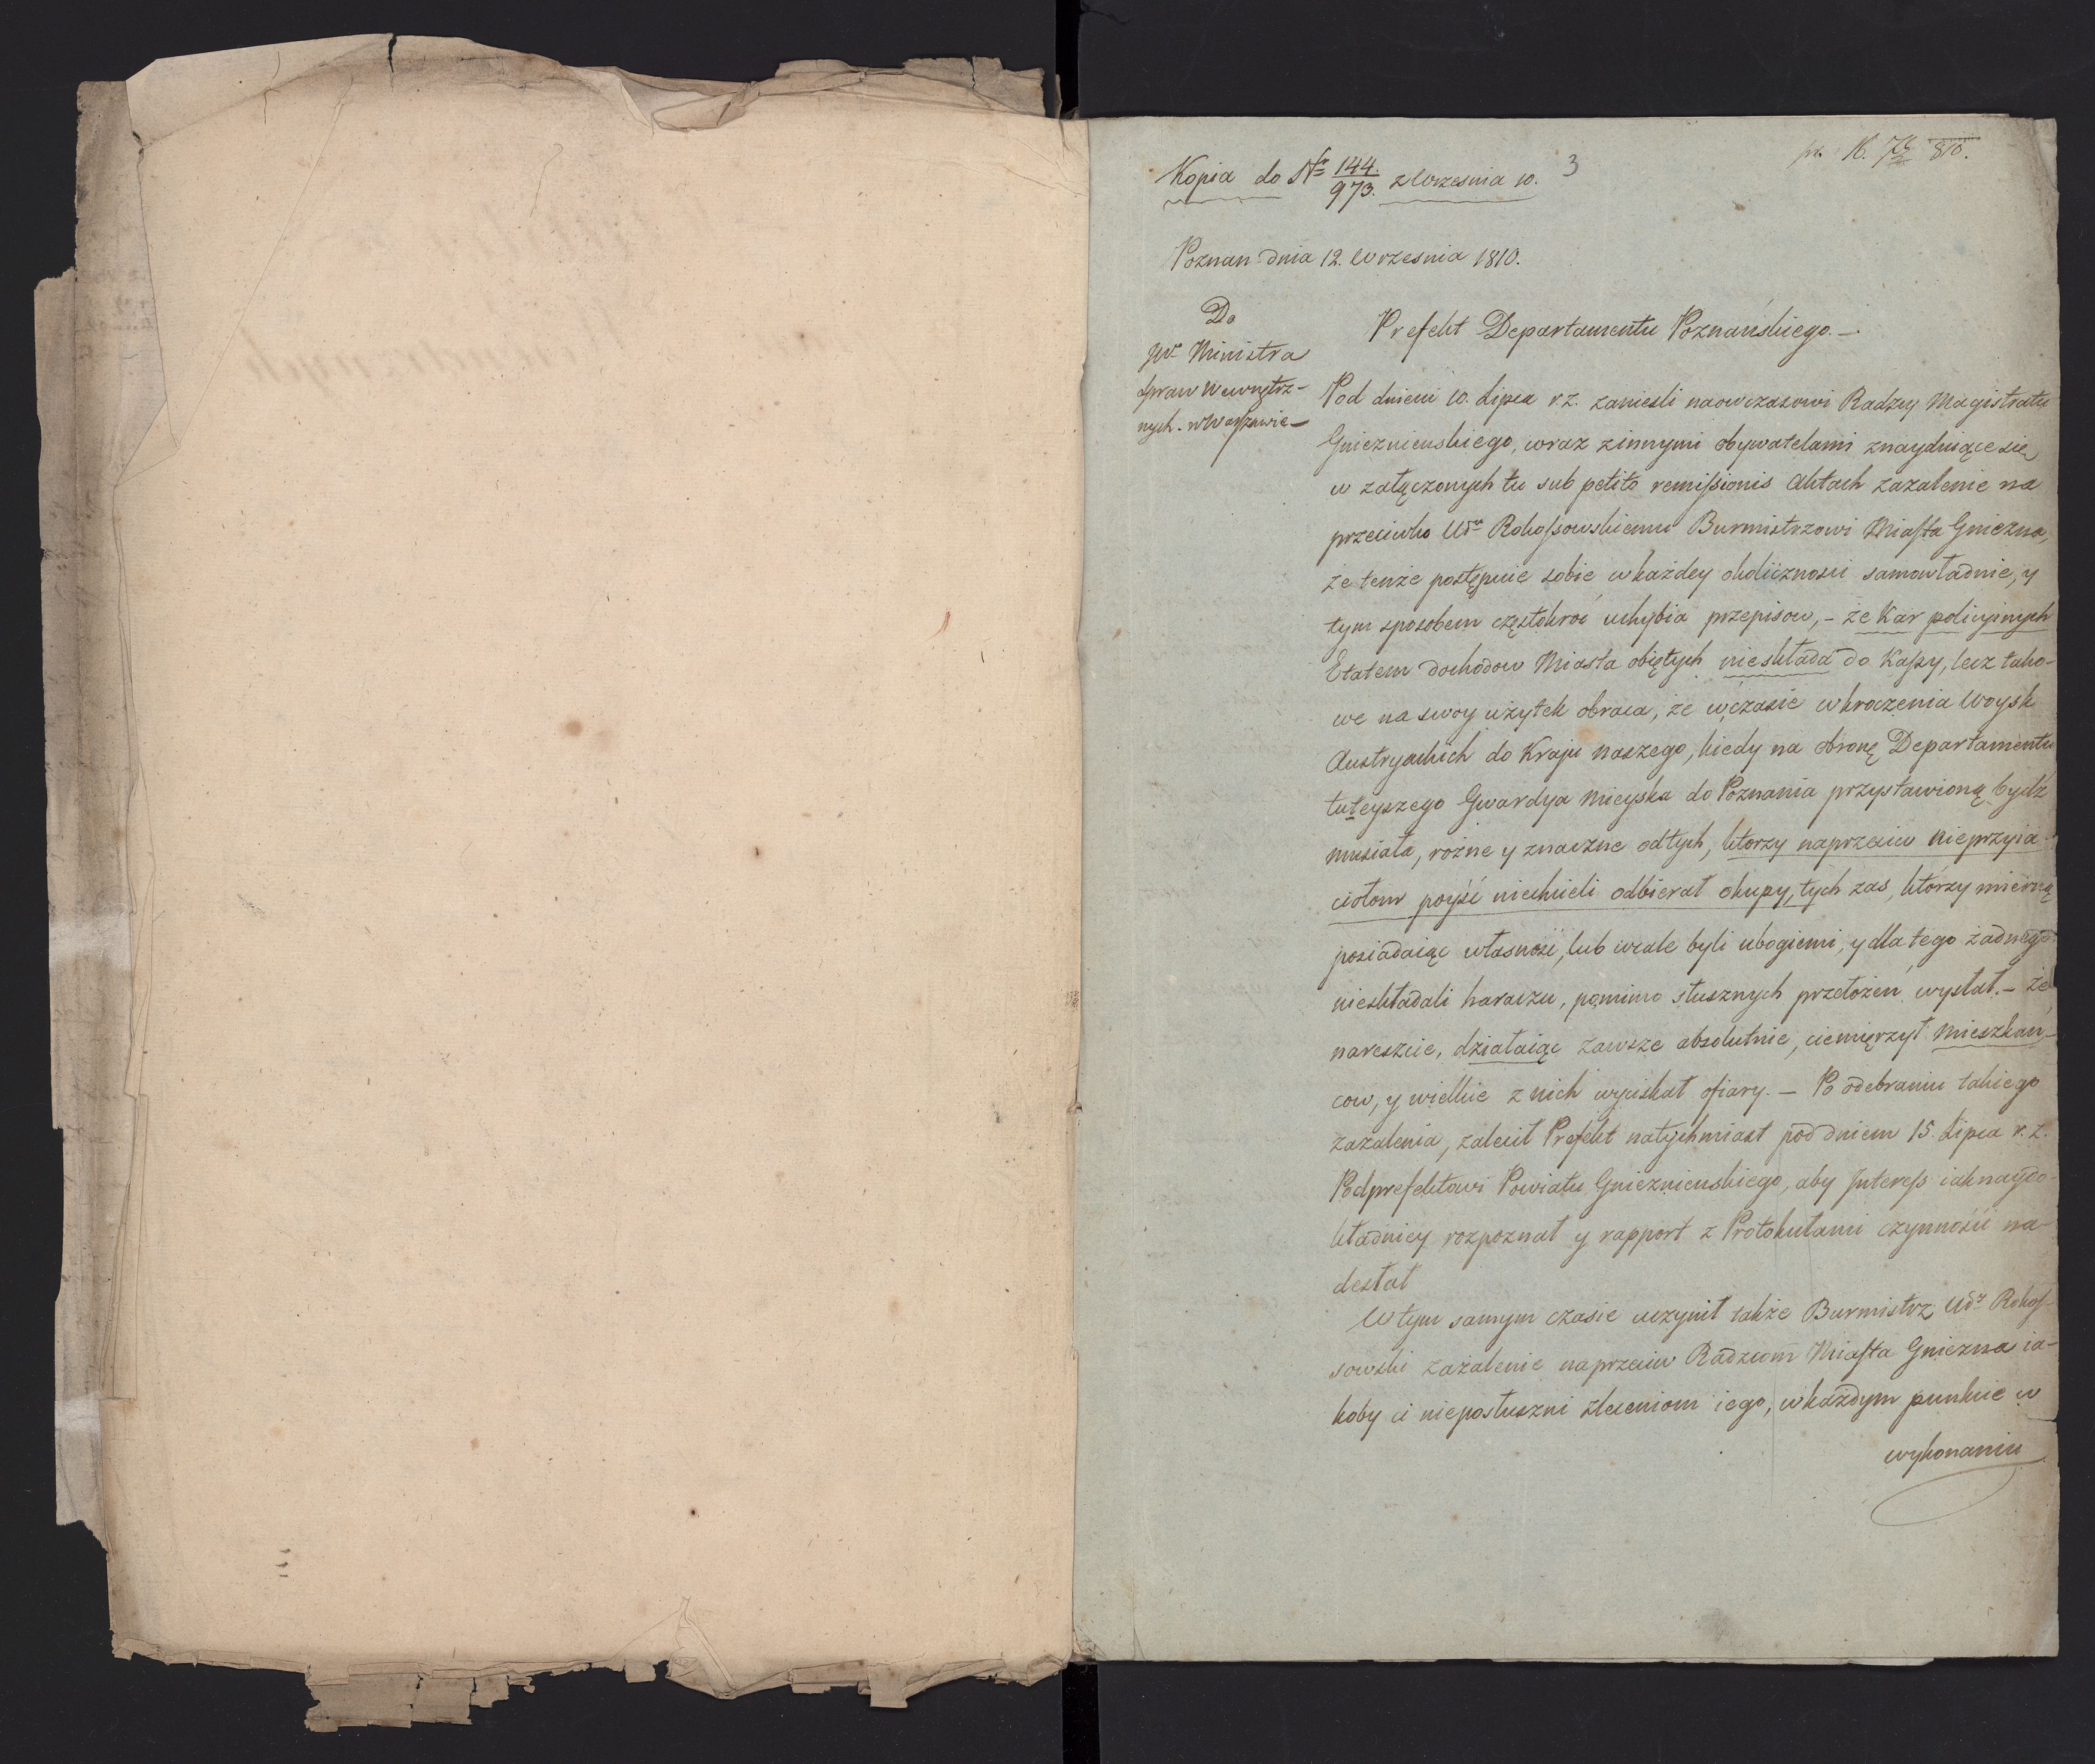 Kopia do Nro 144./973. z Września 10.
3
pr. 16. 7br 810.
Poznan dnia 12. Września 1810.
Do
JW. Ministra
Spraw Wewnętrz-
nych. w Warszawie
Prefekt Departamentu Poznańskiego. –
Pod dniem 10. Lipca r.z. zanieśli naowczasowi Radzcy Magistratu
Gnieznienskiego, wraz z innymi obywatelami znayduiące się
w załączonych tu sub petito remissionis Aktach zazalenie na
przeciwko Ur. Rokossowskiemu Burmistrzowi Miasta Gniezna,
że tenże postępuie sobie w każdey okoliczności samowładnie, y
tym sposobem częstokroć uchybia przepisow, – że Kar policyinych
Etatem dochodow Miasta obiętych nieskłada do Kassy, lecz tako-
we na swoy użytek obraca, że w czasie wkroczenia Woysk
Austryackich do Kraju naszego, kiedy na obronę Departamentu
tuteyszego Gwardya Mieyska do Poznania przystawioną bydź
musiała, rożne y znaczne od tych, ktorzy naprzeciw Nieprzyia-
ciołom poyść niechcieli odbierał okupy, tych zas, ktorzy mierną
posiadaiąc własność, lub wcale byli ubogiemi, y dla tego żadnego
nieskładali haraczu, pomimo słusznych przełożeń wysłał. – że
nareszcie, działaiąc zawsze absolutnie, ciemięrzył Mieszkań-
cow, y wielkie z nich wyciskał ofiary. – Po odebraniu takiego
zazalenia, zalecił Prefekt natychmiast pod dniem 15. Lipca r.z.
Podprefektowi Powiatu Gnieznienskiego, aby Interess iaknaydo-
kładniey rozpoznał y rapport z Protokułami czynności na-
desłał
W tym samym czasie uczynił także Burmistrz Ur. Rokos-
sowski zażalenie naprzeciw Radzcom Miasta Gniezna ia-
koby ci nieposłuszni zleceniom iego, w każdym punkcie w
wykonaniu